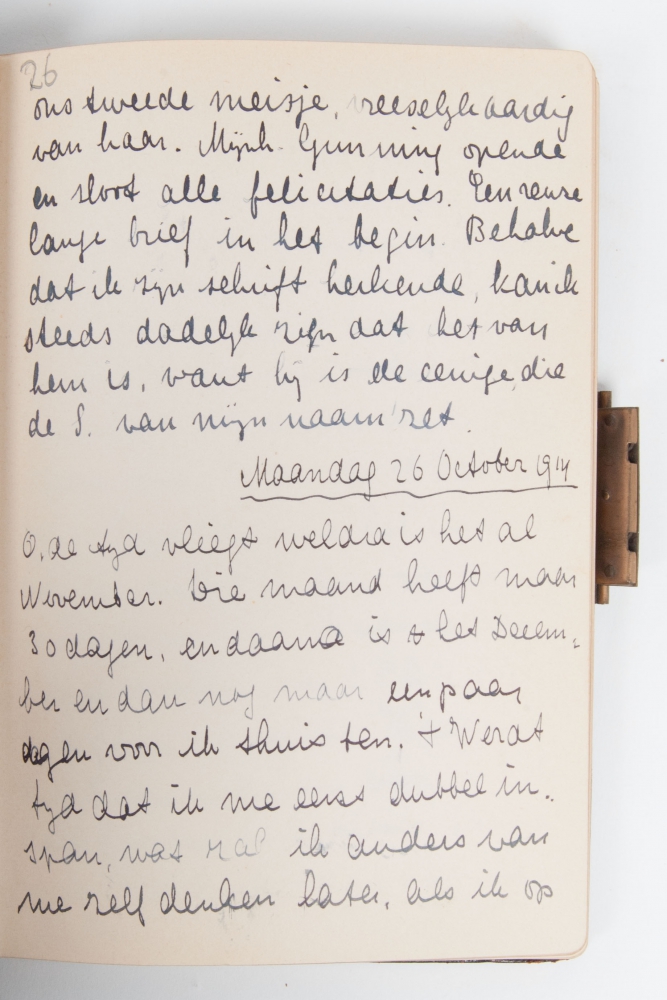 26
ons tweede meisje, vreeselijk aardig
van haar. Mijnh. Gunning opende
en sloot alle felicitaties. Een reuze
lange brief in het begin. Behalve
dat ik zijn schrift herkende, kan ik
steeds dadelijk zien dat het van
hem is, want hij is de eenige, die
de S. van mijn naam zet.
Maandag 26 October 1914
O, de tijd vliegt weldra is het al
November. Die maand heeft maar
30 dagen, en daarna is het Decem-
ber en dan nog maar een paar
dagen voor ik thuis ben. 't Werdt
tijd dat ik me eens dubbel in-
span, wat zal ik anders van
me zelf denken later, als ik op